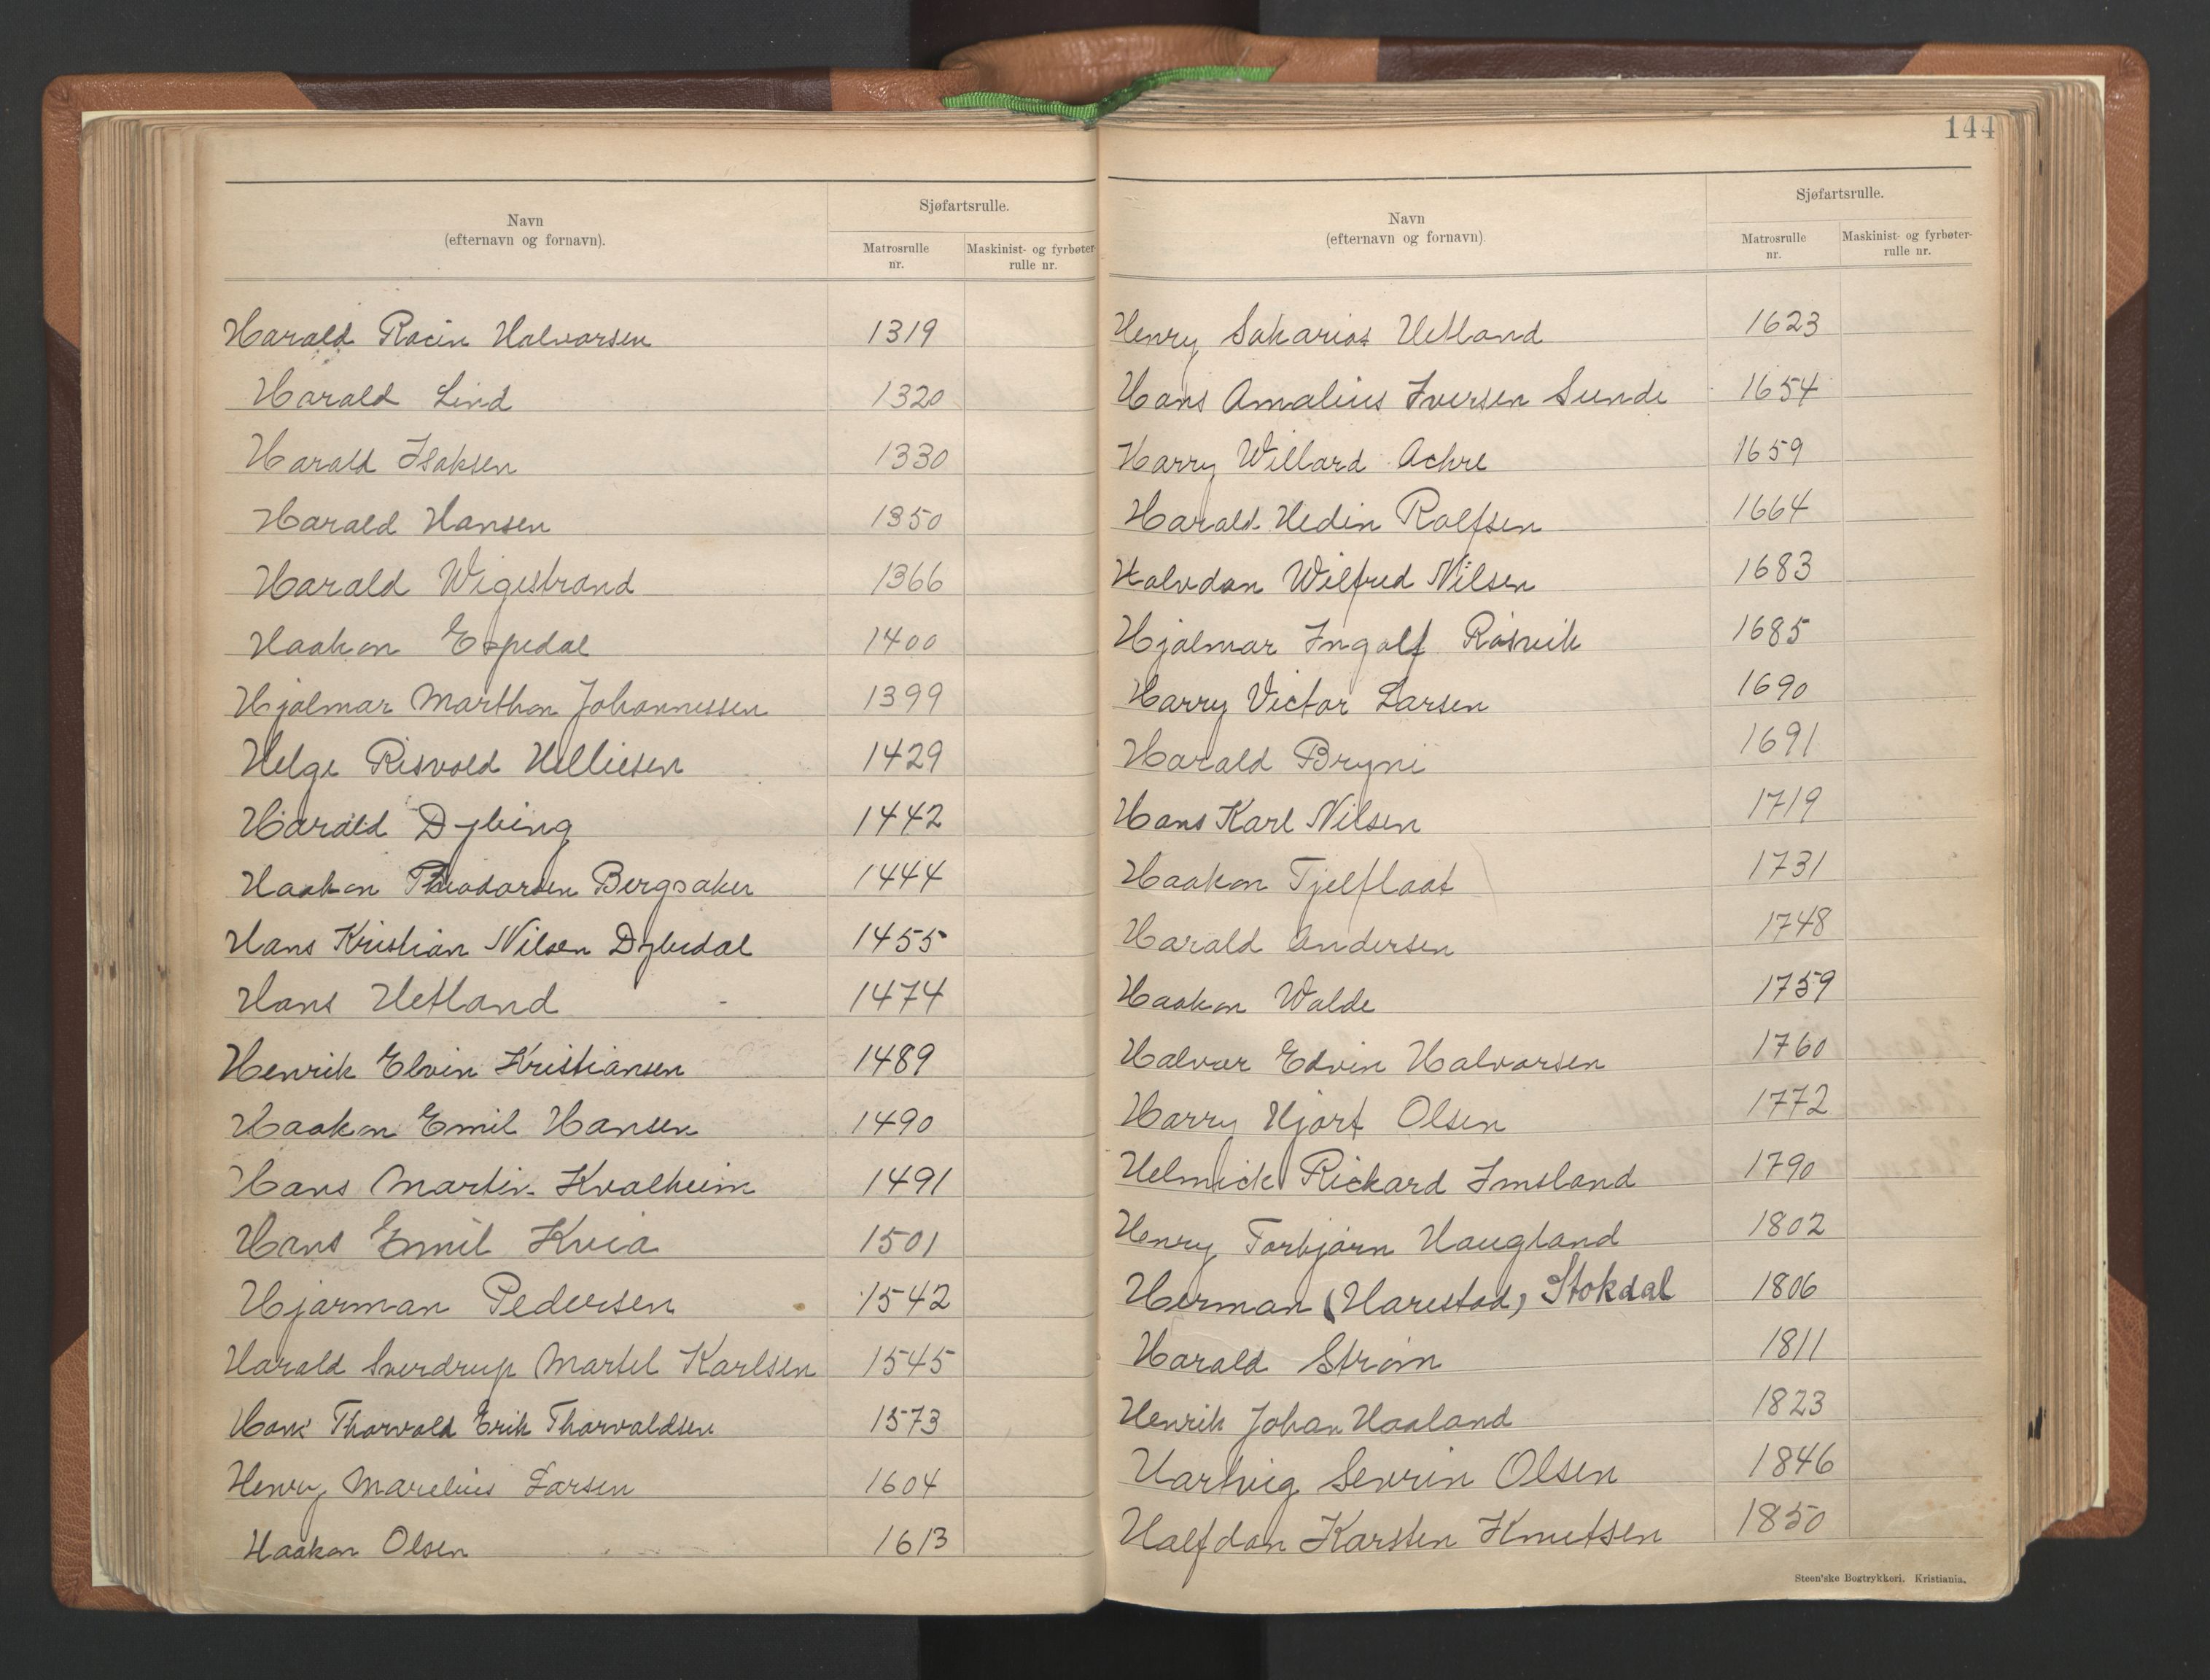 144
Navn
(efternavn og fornavn).
Sjøfartsrulle.
Matrosrulle
nr.
Maskinist- og fyrbøter-
rulle nr.
Harald Racin Halvorsen 1319
Harald Lind 1320
Harald Isaksen 1330
Harald Hansen 1350
Harald Wigestrand 1366
Haakon Espedal 1400
Hjalmar Marthon Johannessen 1399
Helge Risvold Helliesen 1429
Harald Dybing 1442
Haakon Theodorsen Bergsaker 1444
Hans Kristian Nilsen Dybedal 1455
Hans Hetland 1474
Henrik Elvin Kristiansen 1489
Haakon Emil Hansen 1490
Hans Martin Kvalheim 1491
Hans Emil Kvia 1501
Hjarman Pedersen 1542
Harald Sverdrup Martel Karlsen 1545
Hans Thorvald Erik Thorvaldsen 1573
Henry Marelius Larsen 1604
Haakon Olsen 1613
Navn
(efternavn og fornavn).
Sjøfartsrulle.
Matrosrulle
nr.
Maskinist- og fyrbøter-
rulle nr.
Henry Sakarias Hetland 1623
Hans Amalius Iversen Sunde 1654
Harry Willard Achre 1659
Harald Hedin Rolfsen 1664
Halvdan Wilfred Nilsen 1683
Hjalmar Ingolf Rosvik 1685
Harry Victor Larsen 1690
Harald Bryne 1691
Hans Karl Nilsen 1719
Haakon Tjelflaat 1731
Harald Andersen 1748
Haakon Walde 1759
Halvor Edvin Halvorsen 1760
Harry Hjort Olsen 1772
Helmick Rickard Imsland 1790
Henry Torbjørn Haugland 1802
Herman (Harestad) Stokdal 1806
Harald Strøm 1811
Henrik Johan Haaland 1823
Hartvig Sevrin Olsen 1846
Halfdan Karsten Knutsen 1850
Steen'ske Bogtrykkeri. Kristiania.